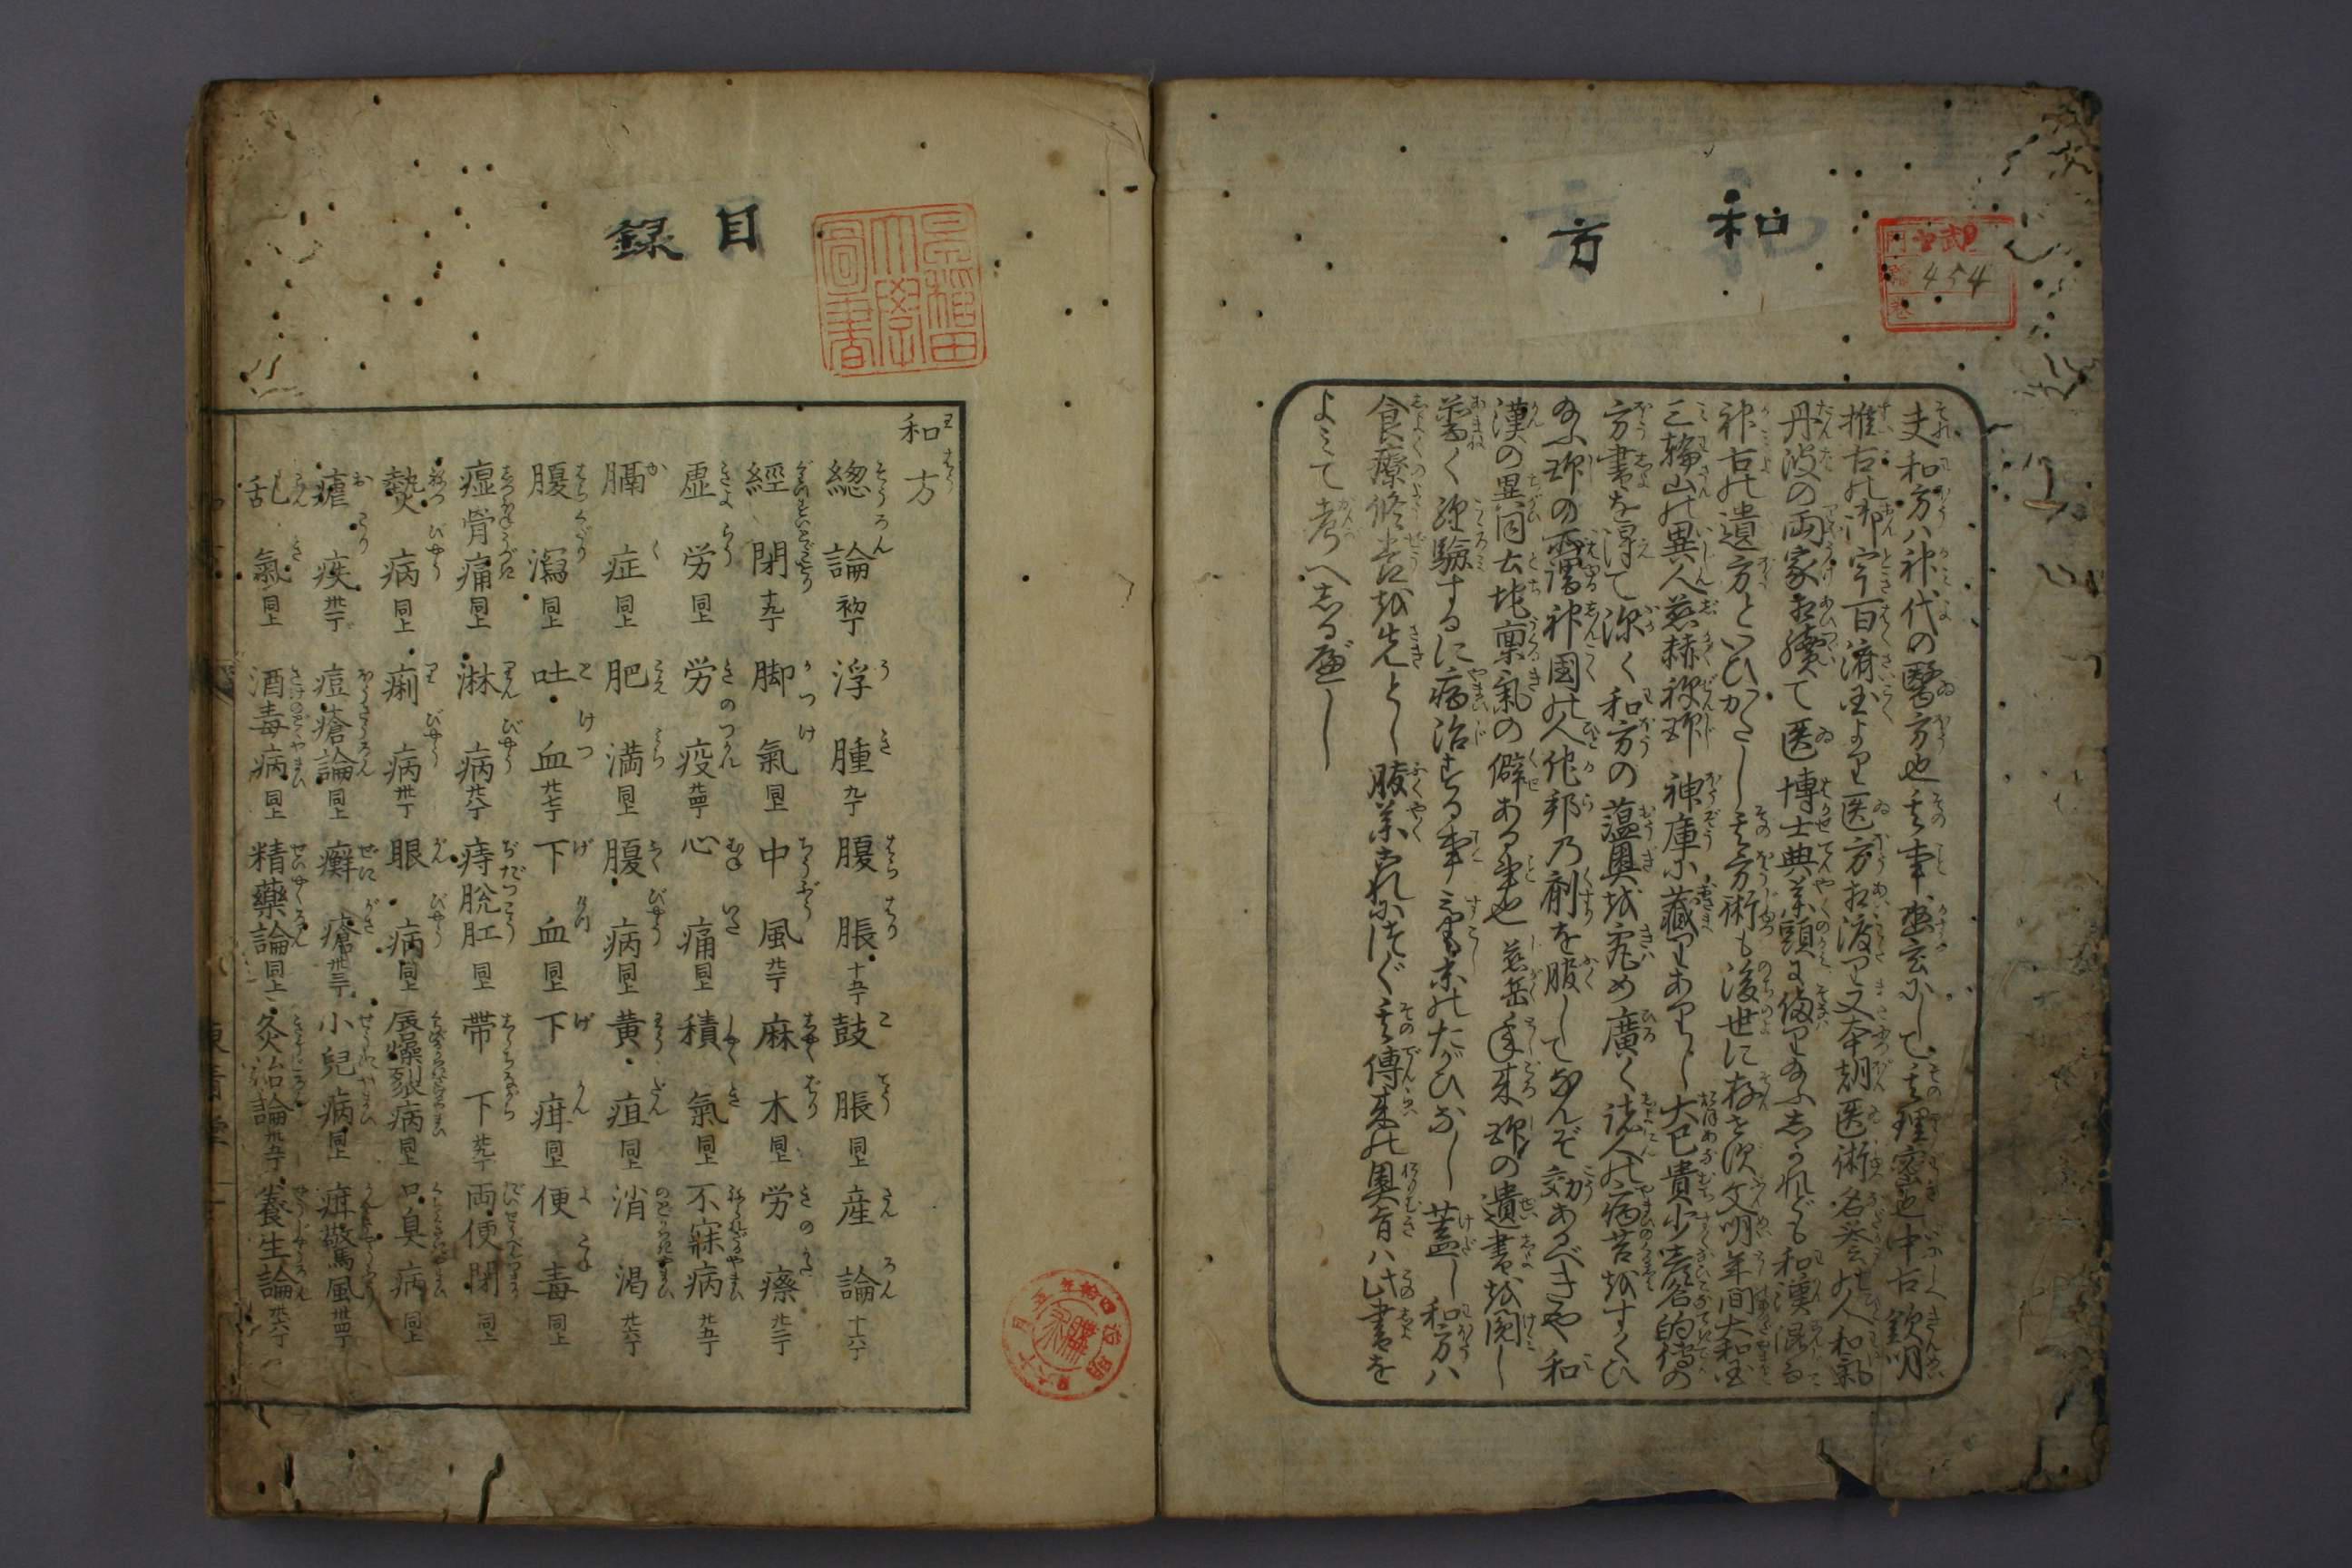 和方
454
夫和方ハ神代の醫方也其事幽玄にして其理蜜也中古欽明
推古の御宇百濟国より医方お渡り又本朝医術名誉の人和氣
丹波の両家相續て医博士典薬頭に備り給ふしかれども和漢混る
神古の遺方といひがたし其方術も後世に存せず文明年間大和国
三輪山の異人慈赫禅師神庫に藏りありし大巳貴少彦名的傳の
方書を淂て深く和方の蘊奥を究め廣く諸人の病苦をすくひ
給ふ師の曰神國の人他邦乃劑を服してなんぞ効あるべきや和
漢の異同土地稟氣の僻ある事也慈岳年来師の遺書を閲し
普く経驗するに病治する事ミな末のたがひなし蓋し和方ハ
食療修養を先とし服薬これにつぐ其傳来の奥旨ハ此書を
よミて考へしるべし
目録
早稲田大學圖書
和方
總論 初丁 浮腫 九丁 腹脹 十五丁 鼓脹 同上 産論 十六丁
經閉 十九丁 脚氣 同上 中風 廿丁 麻木 同上 労瘵 廿二丁
虚労 同上 労疫 廿四丁 心痛 同上 積氣 同上 不寐病 廿五丁
膈症 同上 肥満 同上 腹病 同上 黄疸 同上 消渇 廿六丁
腹瀉 同上 吐血 廿七丁 下血 同上 下疳 同上 便毒 同上
湿骨痛 同上 淋病 廿八丁 痔脱肛 同上 帯下 廿九丁 両便閉 同上
熱病 同上 痢病 卅丁 眼病 同上 唇燥裂病 同上 口臭病 同上
瘧疾 卅二丁 痘瘡論 同上 癬瘡 卅三丁 小兒病 同上 疳驚風 卅四丁
乱氣 同上 酒毒病 同上 精藥論 同上 灸治論 卅五丁 養生論 卅六丁